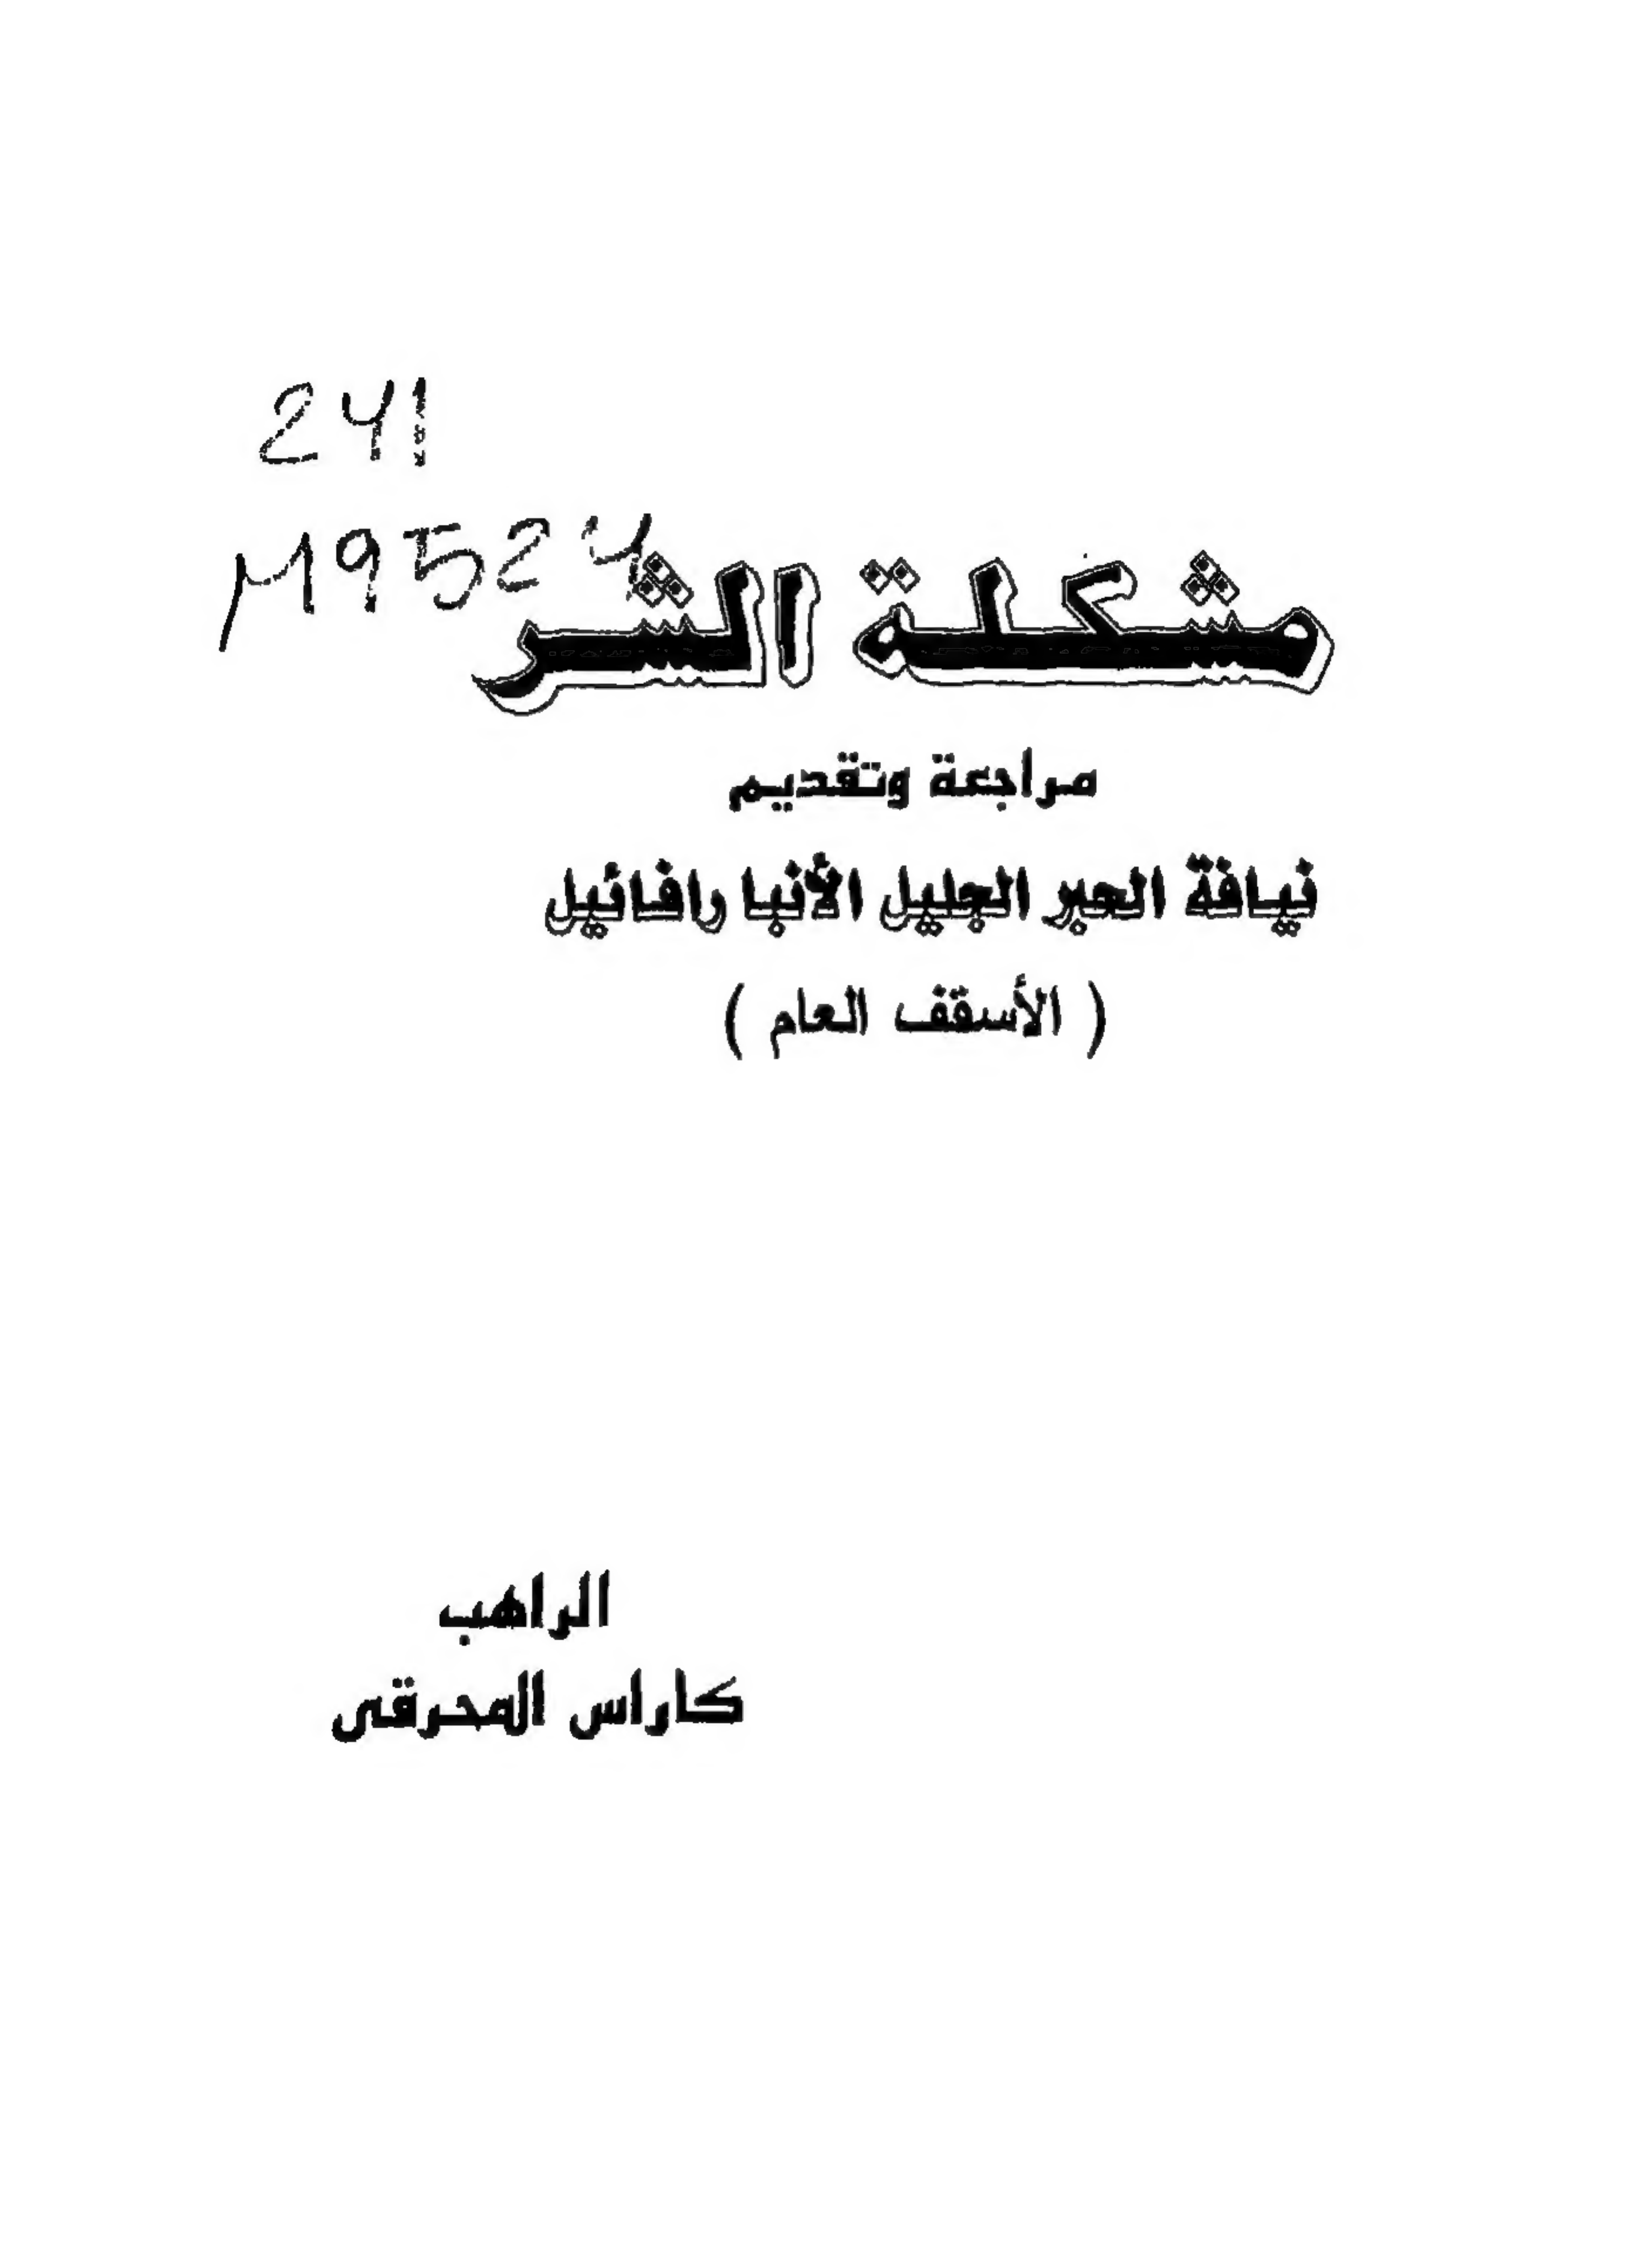 241
M9524
مشكلة الشر
مراجعة وتقديم
نيافة الحبر الجليل الأنبا رافائيل
( الأسقف العام )
الراهب
كاراس المحرقى